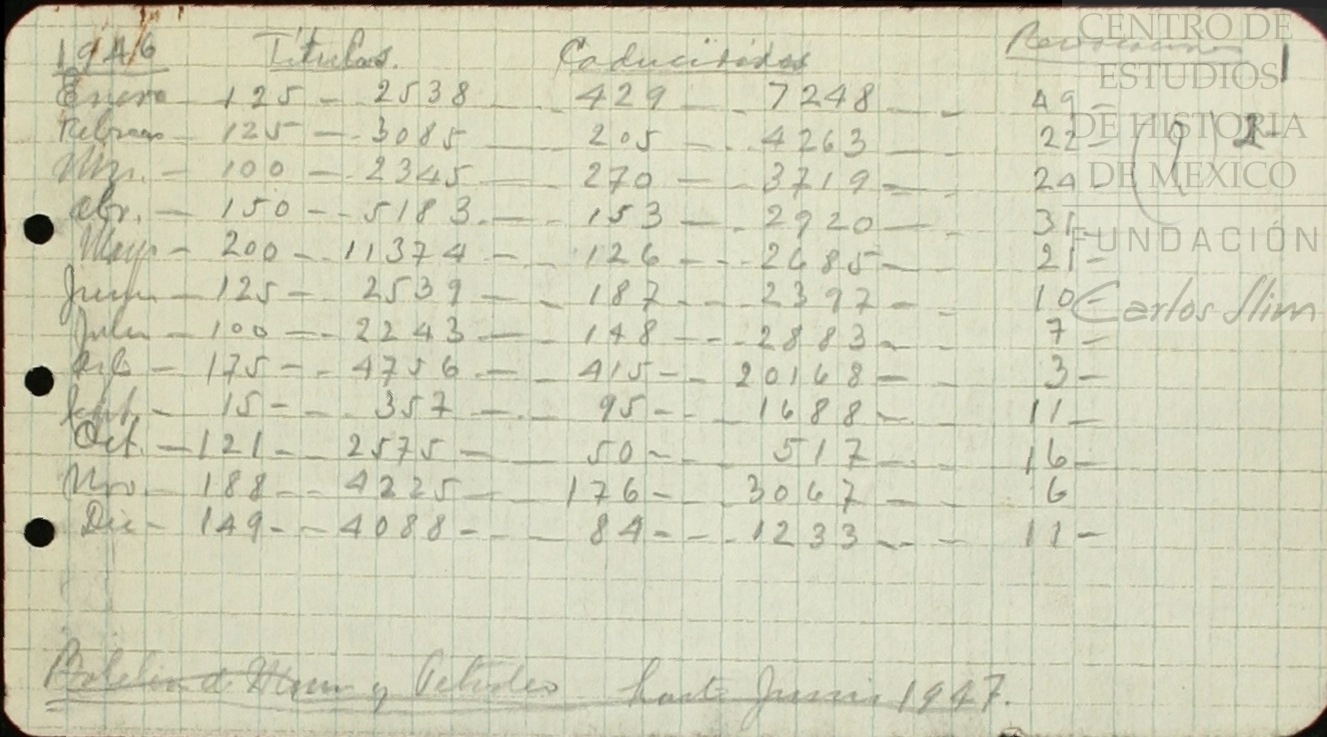 1946 Titulos. Caducidades 1
Enero 125 - 2538 - 429 - 7248 - 49 -
Febrero - 125 - 3085 205 - 4263 - 22 -
Mzo. - 100 - 2345 - 270 - 3719 - 24 -
Abr. - 150 - 5183 - 153 - 2920 - 31 -
Mayo - 200 - 11374 - 126 - 2685 - 21 -
Junio - 125 - 2539 - 187 - 2397 - 10 -
Julio - 100 - 2243 - 148 - 2883 - 7 -
Ago - 175 - 4756 - 415 - 20168 - 3 -
Sept. - 15 - 357 - 95 - 1688 - 11 -
Oct. - 121 - 2575 - 50 - 517 - 16 -
Nov. - 188 - 4225 - 176 - 3067 - 6
Dic - 149 - 4088 - 84 - 1233 - 11 -
Boletin de Minas y Petroleo hasta Junio 1947.
CENTRO DE
ESTUDIOS
DE HISTORIA
DE MEXICO
FUNDACIÓN
Carlos Slim